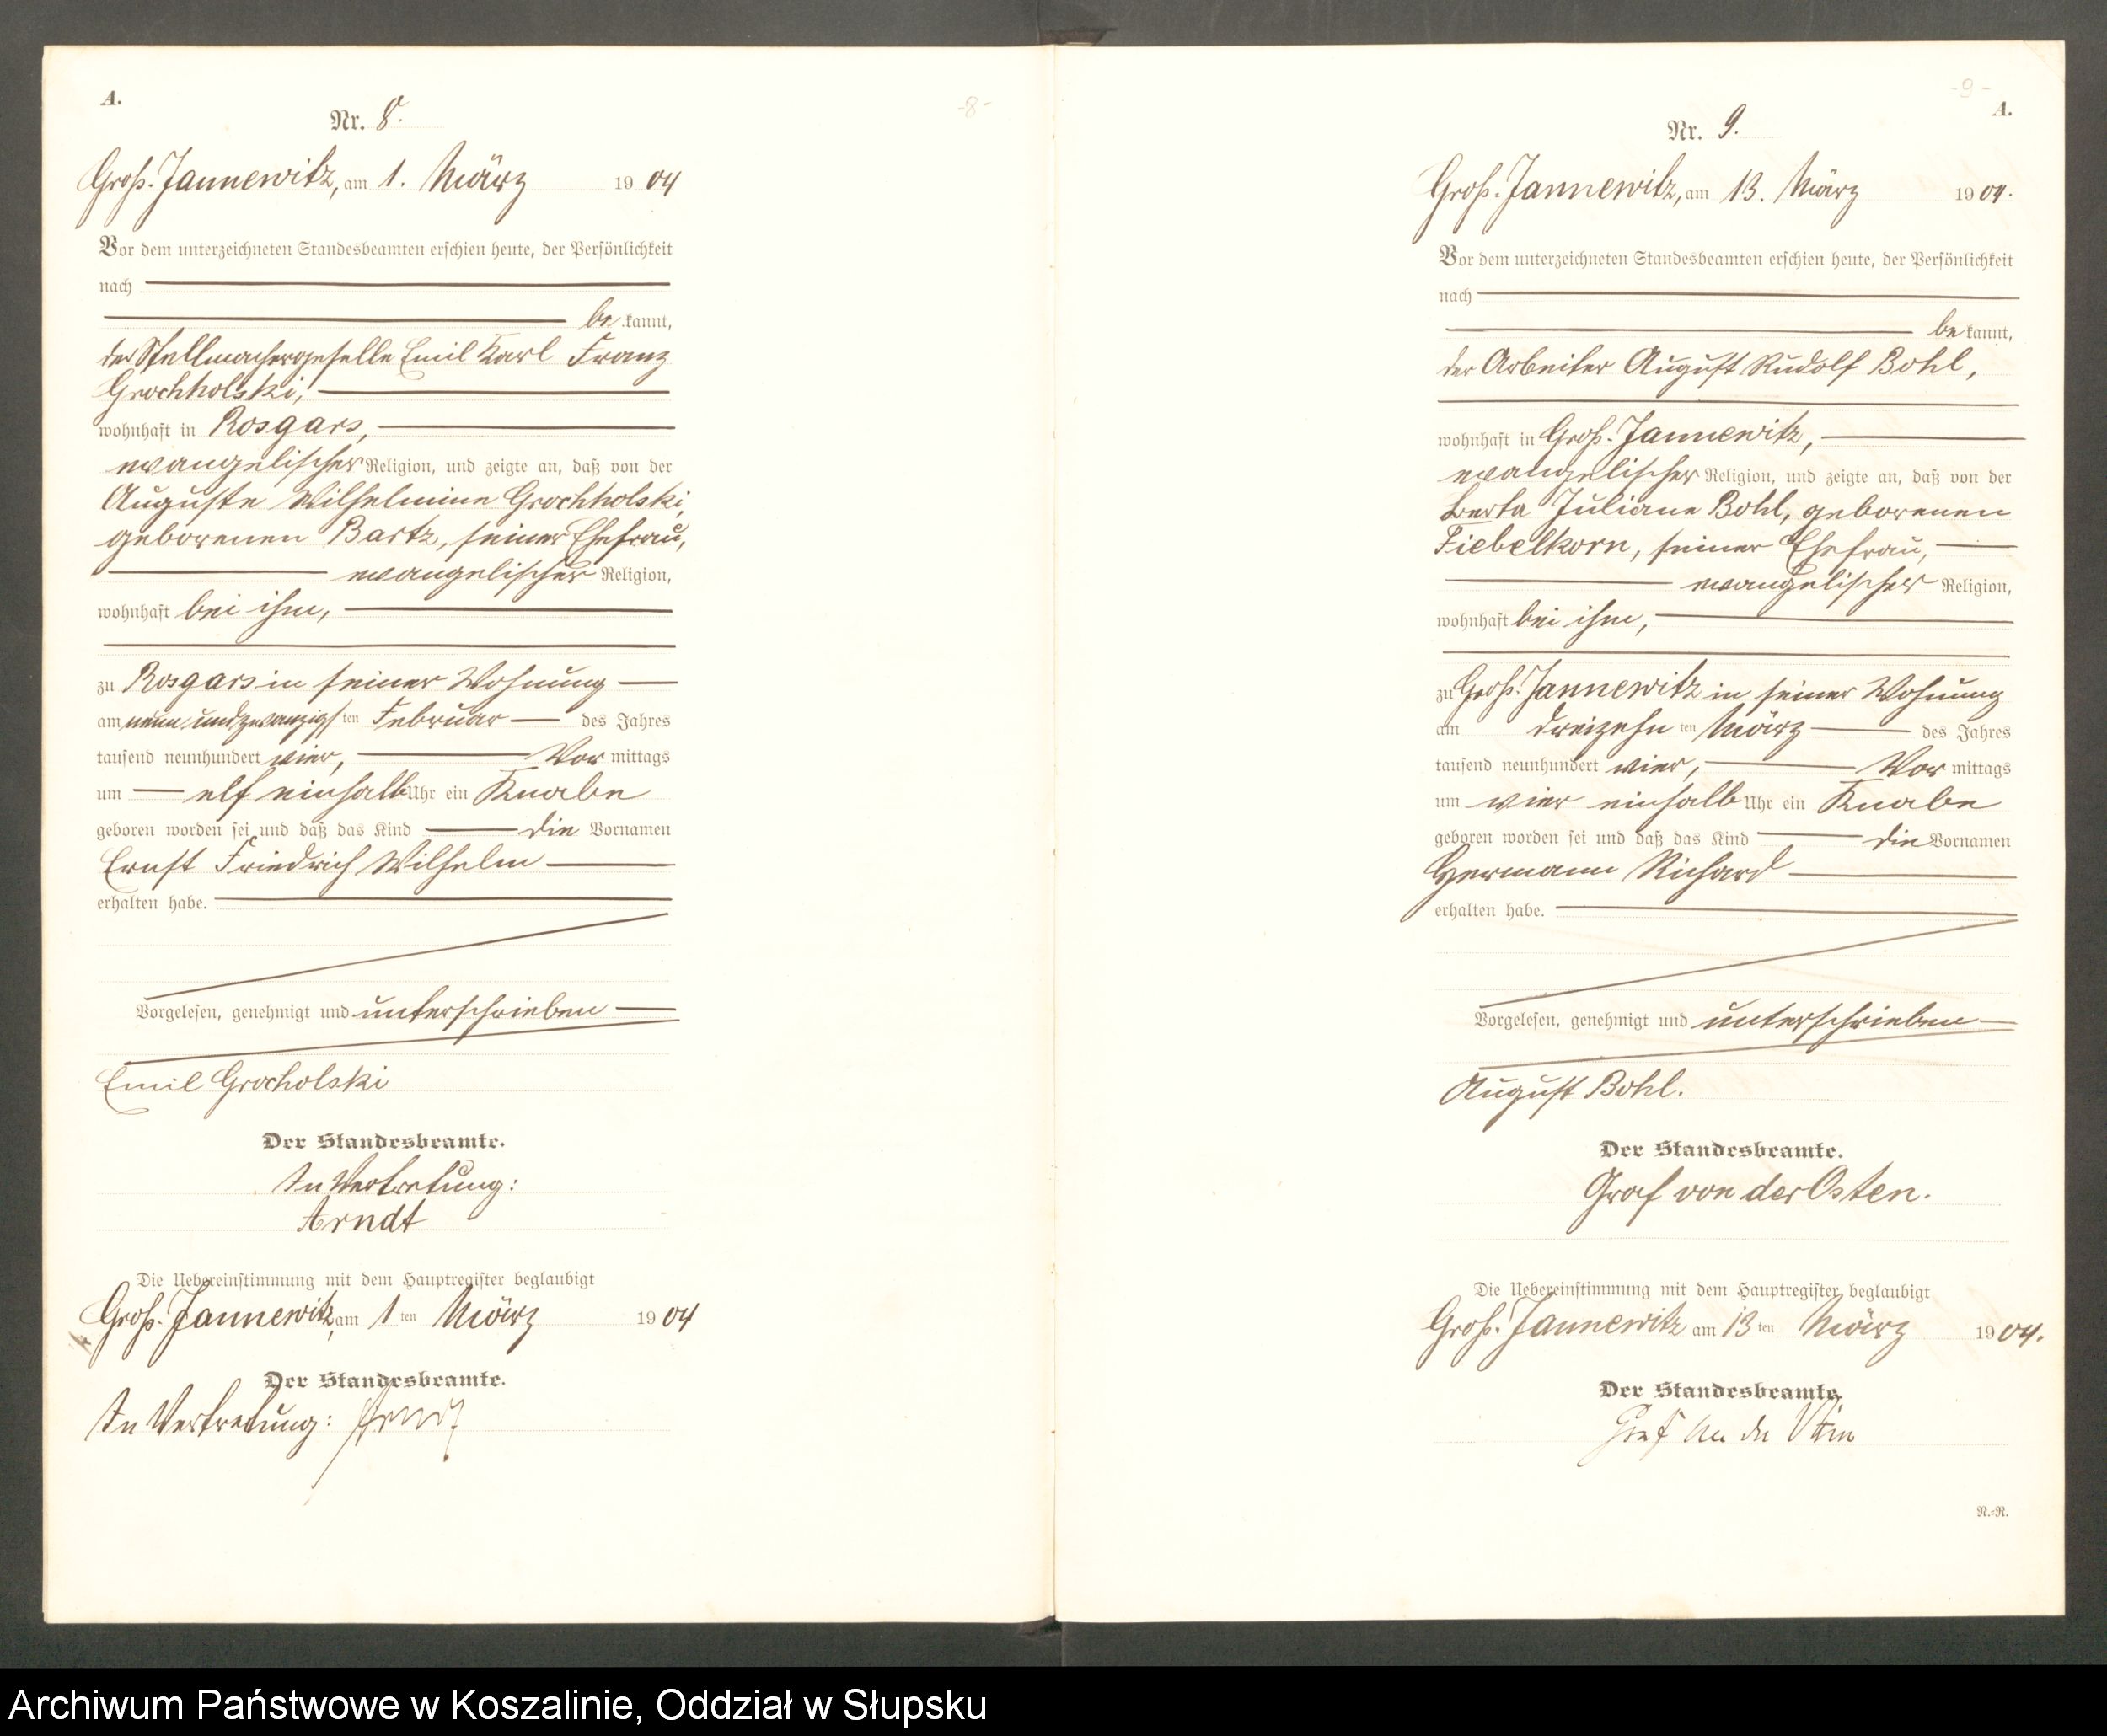 A.
-8-
Nr. 8.
Groß-Jannewitz, am 1. März 1904
Vor dem unterzeichneten Standesbeamten erschien heute, der Persönlichkeit
nach
bekannt,
der Stellmachergeselle Emil Karl Franz
Grochholski,
wohnhaft in Rosgars,
evangelischer Religion, und zeigte an, daß von der
Auguste Wilhelmine Grochholski,
geborenen Bartz, seiner Ehefrau,
evangelischer Religion,
wohnhaft bei ihm,
zu Rosgars in seiner Wohnung
am neun und zwanzigsten Februar des Jahres
tausend neunhundert vier, Vor mittags
um elf einhalb Uhr ein Knabe
geboren worden sei und daß das Kind die Vornamen
Ernst Friedrich Wilhelm
erhalten habe.
Vorgelesen, genehmigt und unterschrieben
Emil Grocholski
Der Standesbeamte.
In Vertretung:
Arndt
Die Uebereinstimmung mit dem Hauptregister beglaubigt
Groß-Jannewitz, am 1ten März 1904
Der Standesbeamte.
In Vertretung: Arndt
-9-
A.
Nr. 9.
Groß-Jannewitz, am 13. März 1904.
Vor dem unterzeichneten Standesbeamten erschien heute, der Persönlichkeit
nach
bekannt,
der Arbeiter August Rudolf Bohl,
wohnhaft in Groß-Jannewitz,
evangelischer Religion, und zeigte an, daß von der
Berta Juliane Bohl, geborenen
Fiebelkorn, seiner Ehefrau,
evangelischer Religion,
wohnhaft bei ihm,
zu Groß-Jannewitz in seiner Wohnung
am dreizehnten März des Jahres
tausend neunhundert vier, Vor mittags
um vier einhalb Uhr ein Knabe
geboren worden sei und daß das Kind die Vornamen
Hermann Richard
erhalten habe.
Vorgelesen, genehmigt und unterschrieben
August Bohl.
Der Standesbeamte.
Graf von der Osten.
Die Uebereinstimmung mit dem Hauptregister beglaubigt
Groß-Jannewitz am 13ten März 1904.
Der Standesbeamte.
Graf von der Osten
R.=R.
Archiwum Państwowe w Koszalinie, Oddział w Słupsku